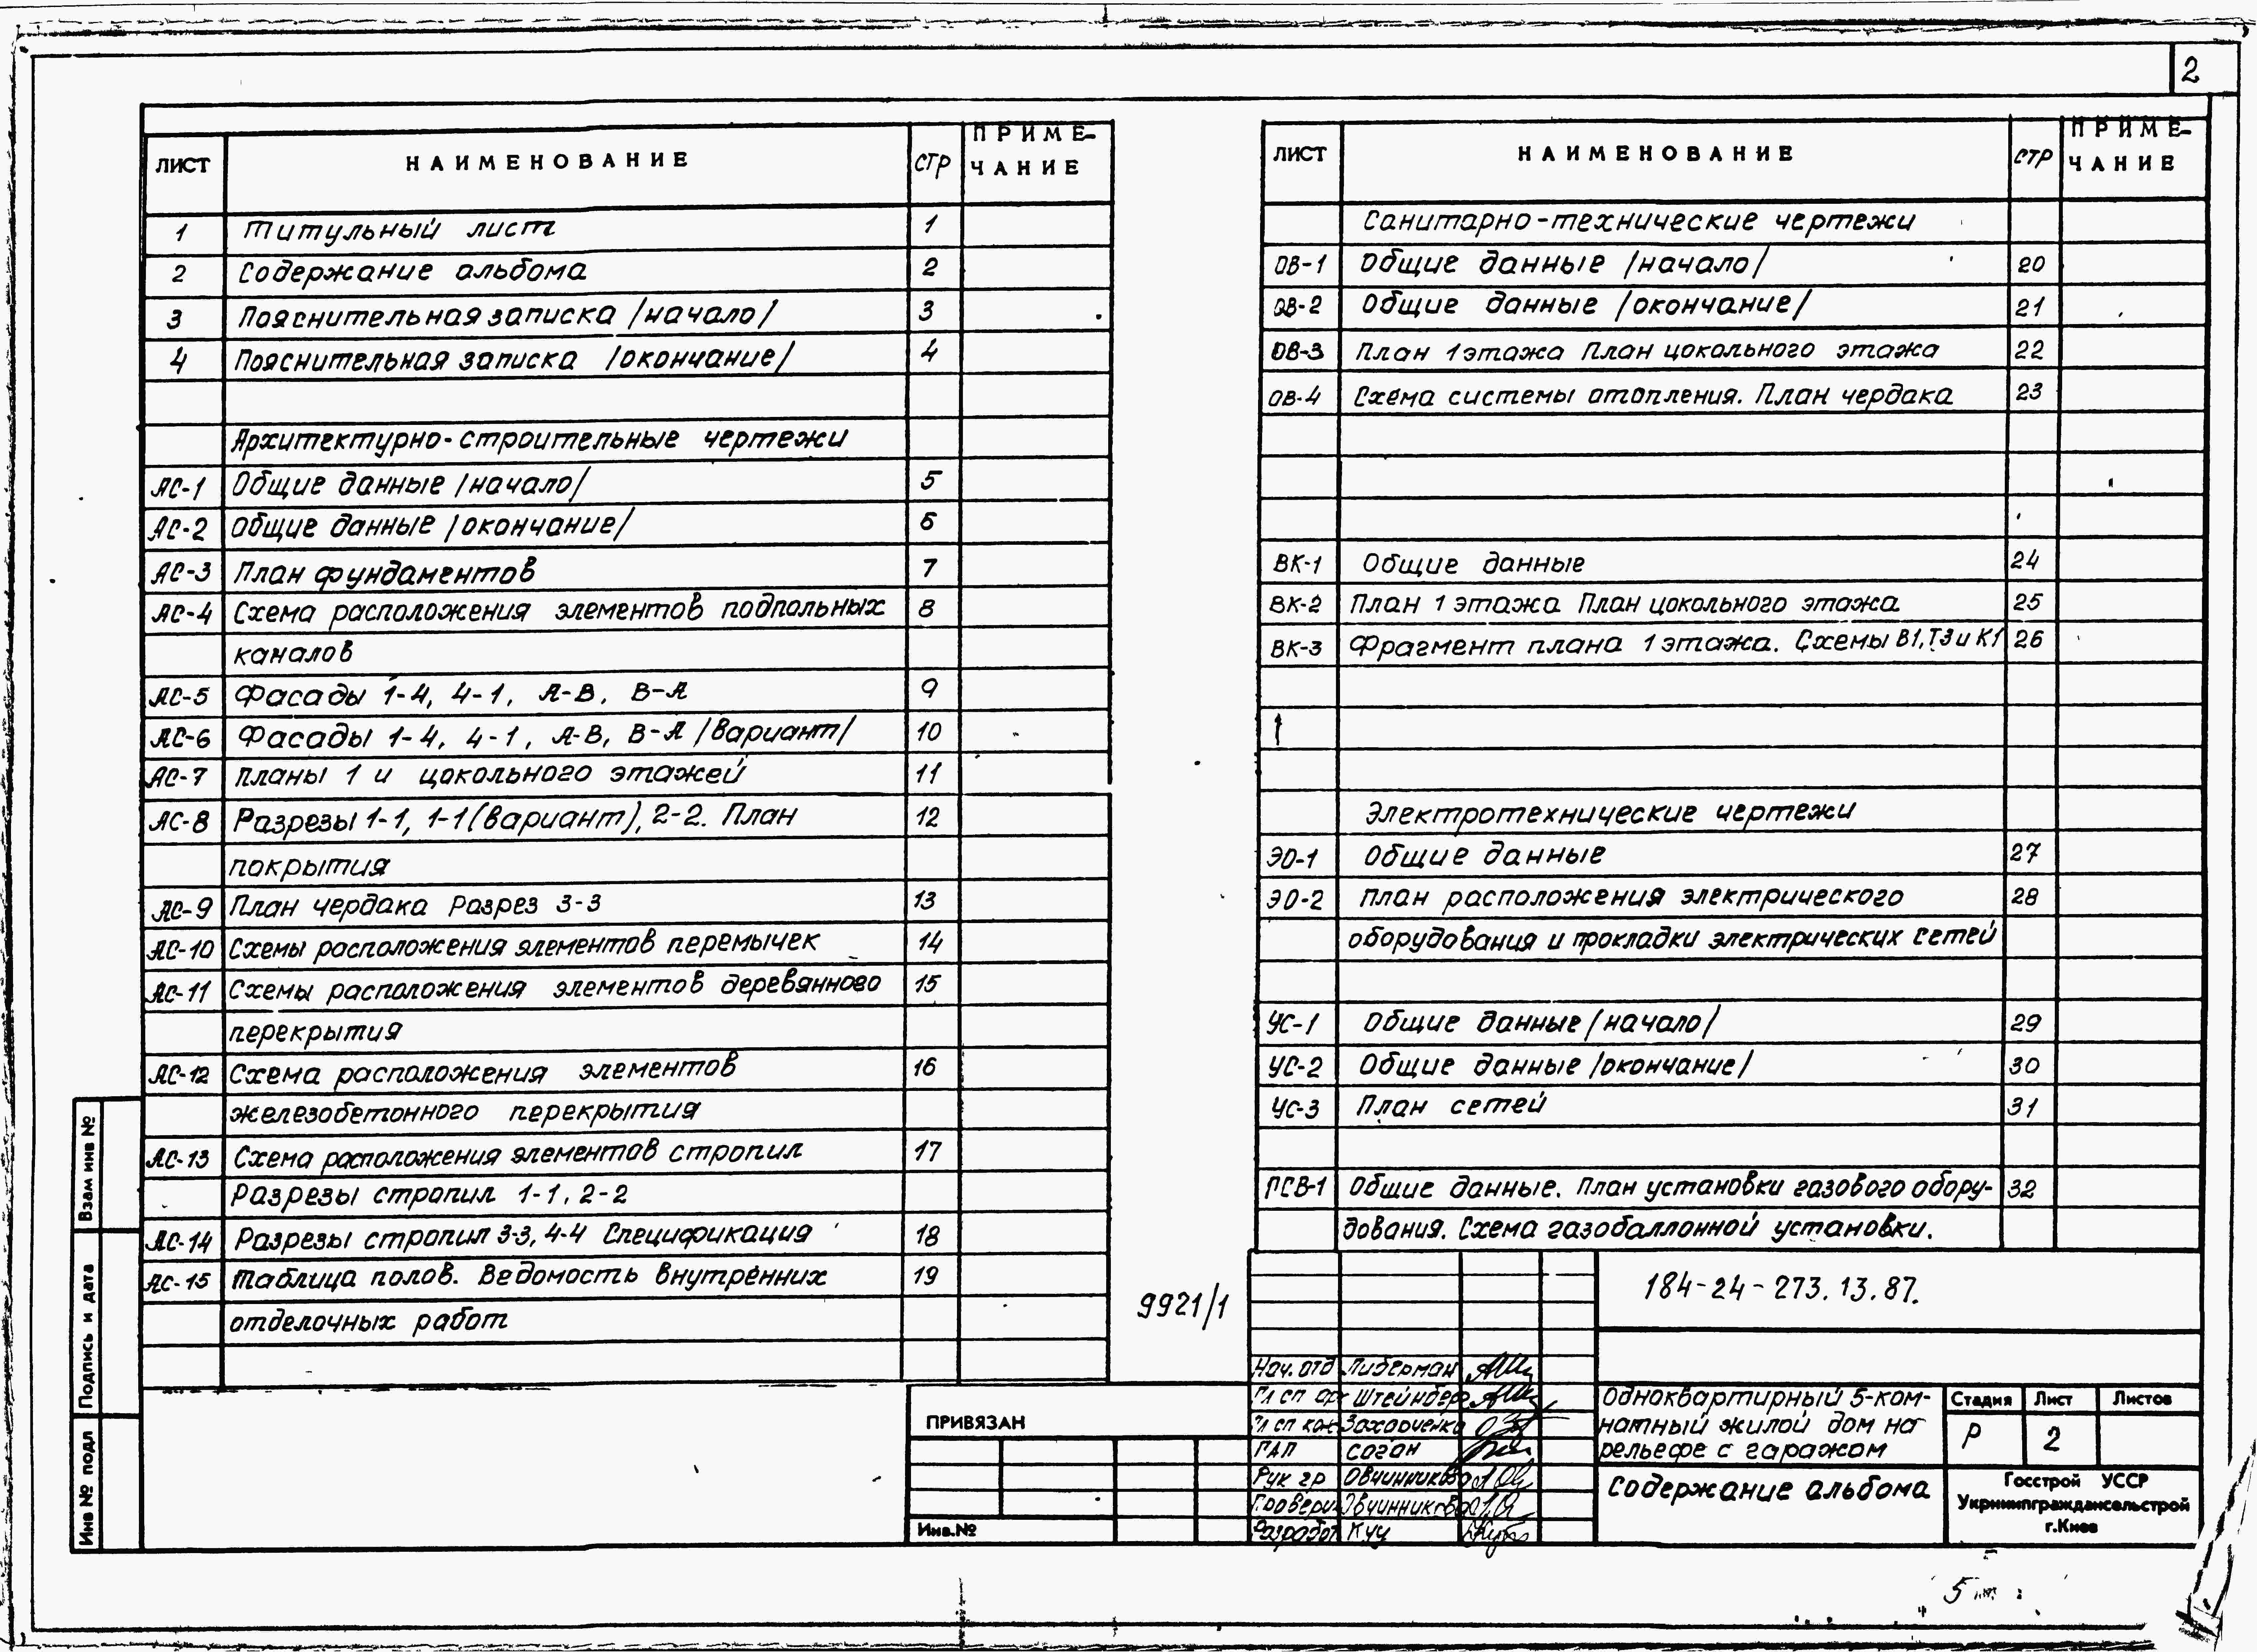 2
ЛИСТ НАИМЕНОВАНИЕ СТР ПРИМЕ-
ЧАНИЕ
1 Титульный лист 1
2 Содержание альбома 2
3 Пояснительная записка /начало/ 3
4 Пояснительная записка /окончание/ 4
Архитектурно-строительные чертежи
АС-1 Общие данные /начало/ 5
АС-2 Общие данные /окончание/ 6
АС-3 План фундаментов 7
АС-4 Схема расположения элементов подпольных 8
каналов
АС-5 Фасады 1-4, 4-1, А-В, В-А 9
АС-6 Фасады 1-4, 4-1, А-В, В-А /вариант/ 10
АС-7 Планы 1 и цокольного этажей 11
АС-8 Разрезы 1-1, 1-1(вариант), 2-2. План 12
покрытия
АС-9 План чердака Разрез 3-3 13
АС-10 Схемы расположения элементов перемычек 14
АС-11 Схемы расположения элементов деревянного 15
перекрытия
АС-12 Схема расположения элементов 16
железобетонного перекрытия
АС-13 Схема расположения элементов стропил 17
Разрезы стропил 1-1, 2-2
АС-14 Разрезы стропил 3-3, 4-4 Спецификация 18
АС-15 Таблица полов. Ведомость внутренних 19
отделочных работ
ЛИСТ НАИМЕНОВАНИЕ СТР ПРИМЕ-
ЧАНИЕ
Санитарно-технические чертежи
ОВ-1 Общие данные /начало/ 20
ОВ-2 Общие данные /окончание/ 21
ОВ-3 План 1 этажа План цокольного этажа 22
ОВ-4 Схема системы отопления. План чердака 23
ВК-1 Общие данные 24
ВК-2 План 1 этажа План цокольного этажа 25
ВК-3 Фрагмент плана 1 этажа. Схемы В1, Т3 и К1 26
Электротехнические чертежи
ЭО-1 Общие данные 27
ЭО-2 План расположения электрического 28
оборудования и прокладки электрических сетей
УС-1 Общие данные /начало/ 29
УС-2 Общие данные /окончание/ 30
УС-3 План сетей 31
ГСВ-1 Общие данные. План установки газового обору- 32
дования. Схема газобаллонной установки.
9921/1
184-24-273.13.87.
Нач. отд Либерман
Гл сп арх Штейнберг
Гл сп кон Захарченко
ГАП Соган
Рук гр Овчинникова
Провери Овчинникова
Разработ Куц
Одноквартирный 5-ком-
натный жилой дом на
рельефе с гаражом
Содержание альбома
Стадия Лист Листов
Р 2
Госстрой УССР
Укрниипграждансельстрой
г.Киев
ПРИВЯЗАН
Инв.№
Взам инв №
Подпись и дата
Инв № подл
5